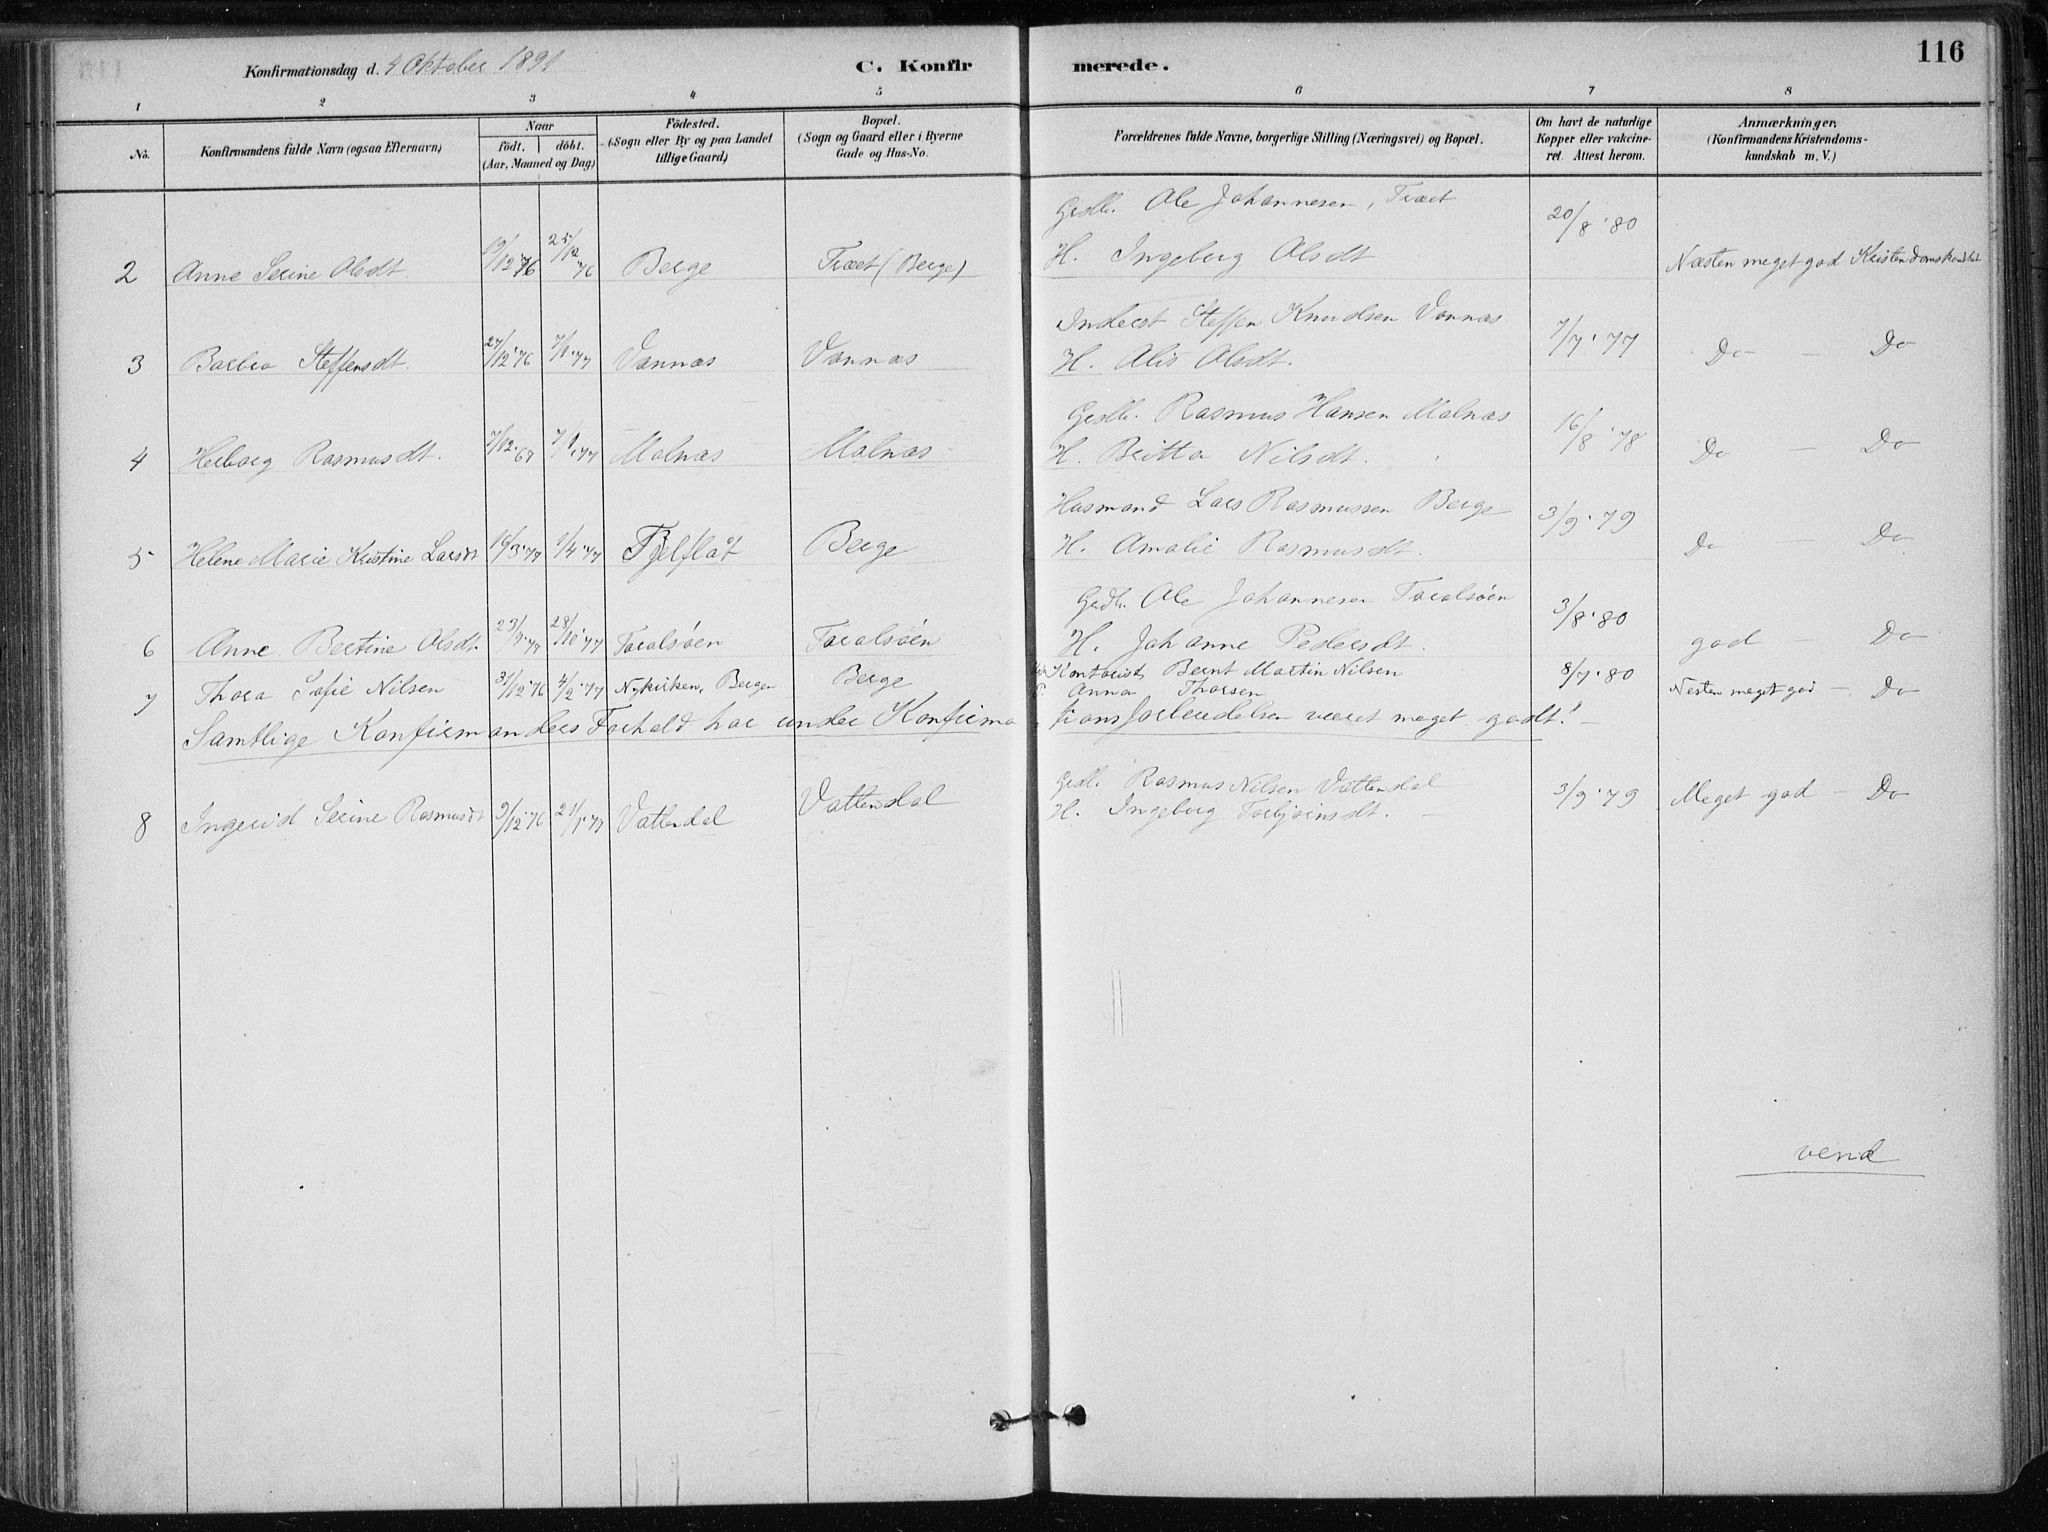 Konfirmationsdag d. 4 Oktober 1891 C. Konfirmerede. 116
1 2 3 4 5 6 7 8
No. Konfirmandens fulde Navn (ogsaa Efternavn) Naar födt. döbt. (Aar, Maaned og Dag) Födested. (Sogn eller By og paa Landet tillige Gaard) Bopæl. (Sogn og Gaard eller i Byerne Gade og Hus-No. Forældrenes fulde Navne, borgerlige Stilling (Næringsvei) og Bopæl. Om havt de naturlige Kopper eller vakcineret. Attest herom. Anmærkninger. (Konfirmandens Kristendomskundskab m. V.)
Gsdbr. Ole Johannesen, Træet 20/8 '80
2 Anne Serine Olsdt. 19/12 '76 25/12 '76 Berge Træet (Berge) H. Ingeborg Olsdt Næsten meget god Kristendomskundskab
Inderst Steffen Knudsen Vannæs
3 Barbra Steffensdt. 27/12 '76 7/1 '77 Vannæs Vannæs H. Alis Olsdt. 7/7 '77 Do — Do
Gsdbr. Rasmus Hansen Malnæs
4 Herborg Rasmusdt. 7/12 67 7/1 '77 Malnæs Malnæs H. Britta Nilsdt. 16/8 '78 Do — Do
Husmand Lars Rasmussen Berge 3/9 '79
5 Helene Marie Kristine Larsdt 16/3 '77 1/4 '77 Fjelflåt Berge H. Amalie Rasmusdt. Do — Do
Gsdbr. Ole Johannesen Toralsöen 3/8 '80
6 Anne Bertine Olsdt. 23/9 '77 28/10 '77 Toralsöen Toralsöen H. Johanne Pedersdt. god — Do
7 Thora Sofie Nilsen 31/12 '76 4/2 '77 Nykirken, Bergen Berge Kontorist Bernt Martin Nilsen 8/7 '80 Nesten meget god — Do
Anna Thorsen
Samtlige Konfirmanders Forhold har under Konfirmationsforberedelsen været meget godt. —
8 Ingerid Serine Rasmusdt 9/12 '76 21/1 '77 Vattendal Vattendal Gsdbr. Rasmus Nilsen Vattendal 3/9 '79 Meget god — Do
H. Ingeborg Torbjörnsdt. —
vend